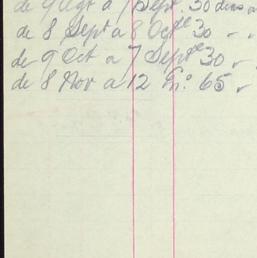 de 9 Agt a 7 Sept. 30 dias
de 8 Sept a 8 Octre 30 " "
de 9 Oct a 7 Septre 30 "
de 8 Nov a 12 " 65 "